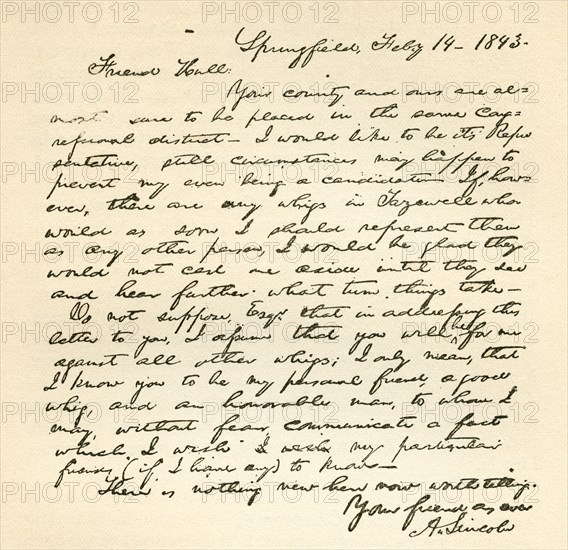 Springfield, Feby 14 - 1843.
Friend Hull:
Your county and ours are al=
most sure to be placed in the same Con=
gressional district - I would like to be its Repre
sentative, still circumstances may happen to
prevent my even being a candidate - If, how=
ever, there are any whigs in Tazewell who
would as soon I should represent them
as any other person, I would be glad they
would not cast me aside until they see
and hear further what turn things take -
Do not suppose, Esqr. that in addressing this
letter to you, I assume that you will be for me
against all other whigs; I only mean, that
I know you to be my personal friend, a good
whig, and an honorable man, to whom I
may, without fear, communicate a fact
which I wish I wish my particular
friends, (if I have any) to know -
There is nothing new here now worth telling.
Your friend as ever
A. Lincoln
PHOTO12